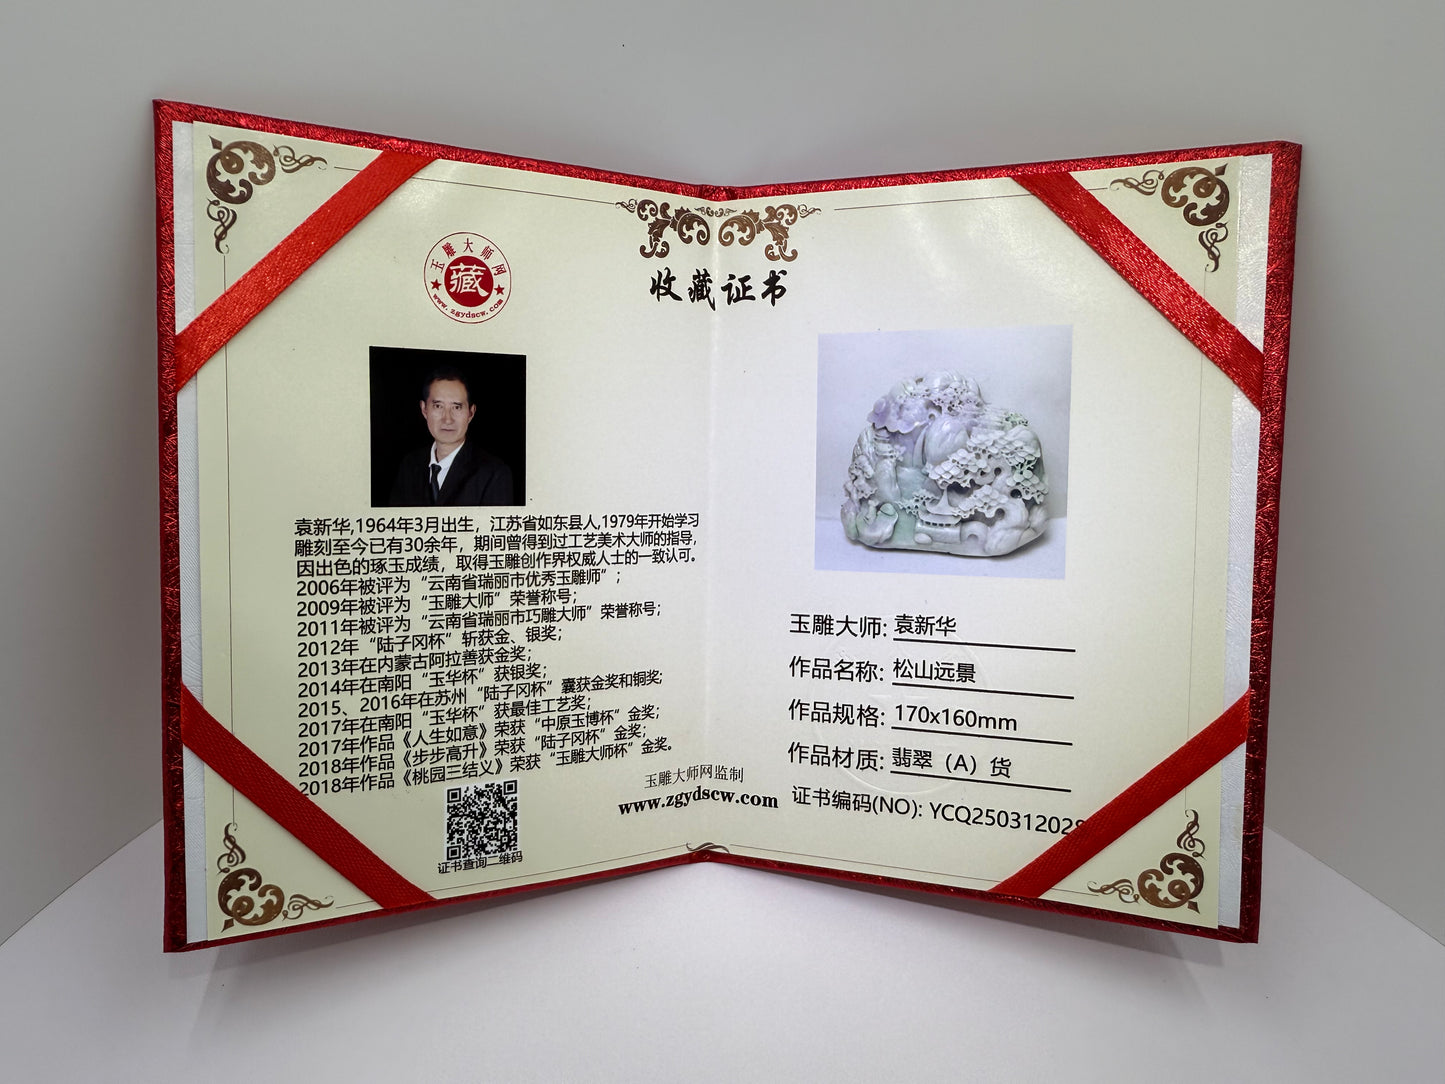 玉雕大师网
藏
www.zgydscw.com
收藏证书
袁新华,1964年3月出生，江苏省如东县人,1979年开始学习
雕刻至今已有30余年，期间曾得到过工艺美术大师的指导,
因出色的琢玉成绩，取得玉雕创作界权威人士的一致认可。
2006年被评为“云南省瑞丽市优秀玉雕师”；
2009年被评为“玉雕大师”荣誉称号；
2011年被评为“云南省瑞丽市巧雕大师”荣誉称号；
2012年“陆子冈杯”斩获金、银奖；
2013年在内蒙古阿拉善获金奖；
2014年在南阳“玉华杯”获银奖；
2015、2016年在苏州“陆子冈杯”囊获金奖和铜奖；
2017年在南阳“玉华杯”获最佳工艺奖；
2017年作品《人生如意》荣获“中原玉博杯”金奖；
2018年作品《步步高升》荣获“陆子冈杯”金奖；
2018年作品《桃园三结义》荣获“玉雕大师杯”金奖。
证书查询二维码
玉雕大师网监制
www.zgydscw.com
玉雕大师: 袁新华
作品名称: 松山远景
作品规格: 170x160mm
作品材质: 翡翠（A）货
证书编码(NO): YCQ250312028